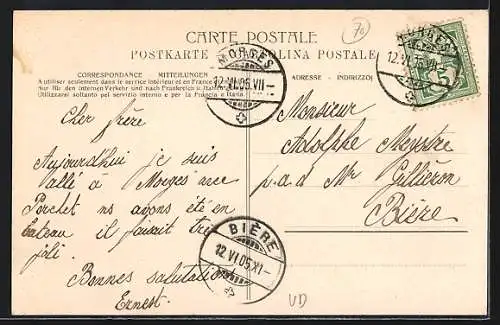 CARTE POSTALE
POSTKARTE CARTOLINA POSTALE
CORRESPONDANCE MITTEILUNGEN
ADRESSE - INDIRIZZO
A utiliser seulement dans le service intérieur et en France
Nur für den internen Verkehr und nach Frankreich
Utilizzarsi soltanto pel servizio interno e per la Francia e Italia
MORGES
12.VI.05.VII-
MORGES
12.VI.05
5
70
Cher frère
Aujourdhui je suis
allé à Morges avec
Perchet ns avons été en
bateau il faisait très
joli.
Bonnes salutations
Ernest.
Monsieur
Adolphe Meystre
p.a.d Mr Gilliéron
Bière
BIÈRE
12.VI.05.XI-
VD